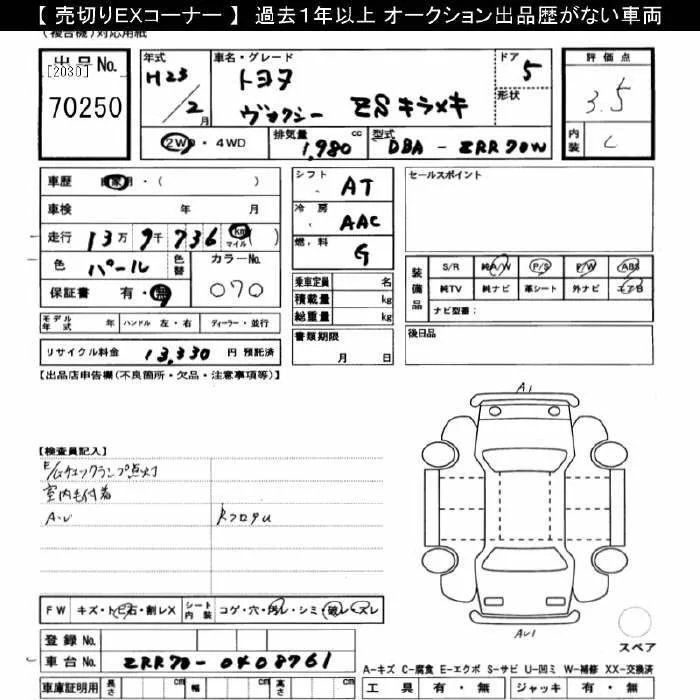 【 売切りEXコーナー 】 過去1年以上 オークション出品歴がない車両
(複合機)対応用紙
出品No.
[2030]
70250
年式
H23/2月
車名・グレード
トヨタ
ヴォクシー ZSキラメキ
ドア
5
形状
評価点
3.5
内装
C
2WD・4WD
排気量
1,980 cc
型式
DBA - ZRR70W
車歴 自家用・( )
車検 年 月
走行 13万9千736 km マイル ( )
色 パール 色替
カラーNo.
070
保証書 有・無
モデル年式 年 ハンドル 左・右 ディーラー・並行
リサイクル料金 13,330 円 預託済
シフト AT
冷房 AAC
燃料 G
乗車定員 名
積載量 kg
総重量 kg
書類期限
月 日
セールスポイント
装備品
S/R 純A/W P/S P/W ABS
純TV 純ナビ 革シート 外ナビ エアB
ナビ型番:
後日品
【出品店申告欄(不良箇所・欠品・注意事項等)】
【検査員記入】
E/Gチェックランプ点灯
室内毛付着
A・U
RフロアU
A1
AU1
スペア
FW キズ・トビ石・割レX シート内装 コゲ・穴・汚レ・シミ・破レ・スレ
登録No.
車台No. ZRR70-0408761
車庫証明用 長さ cm 幅 cm 高さ cm
A-キズ C-腐食 E-エクボ S-サビ U-凹ミ W-補修 XX-交換済
工具 有・無 ジャッキ 有・無